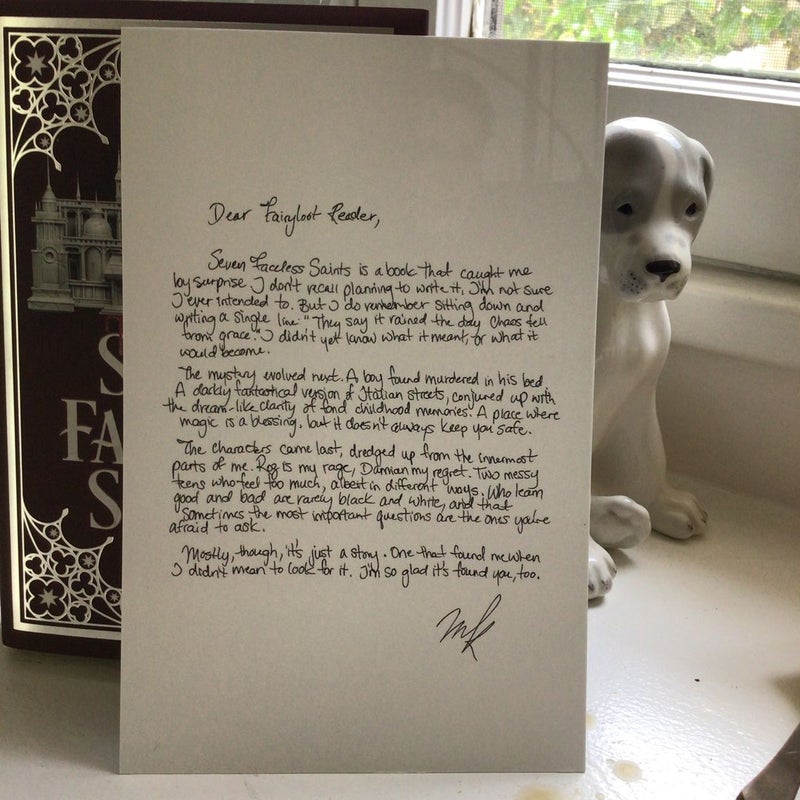 Dear Fairyloot Reader,
Seven Faceless Saints is a book that caught me
by surprise. I don't recall planning to write it. I'm not sure
I ever intended to. But I do remember sitting down and
writing a single line: "They say it rained the day Chaos fell
from grace." I didn't yet know what it meant, or what it
would become.
The mystery evolved next. A boy found murdered in his bed
A darkly fantastical version of Italian streets, conjured up with
the dream-like clarity of fond childhood memories. A place where
magic is a blessing, but it doesn't always keep you safe.
The characters came last, dredged up from the innermost
parts of me. Roz is my rage, Damian my regret. Two messy
teens who feel too much, albeit in different ways. Who learn
good and bad are rarely black and white, and that
sometimes the most important questions are the ones you're
afraid to ask.
Mostly, though, it's just a story. One that found me when
I didn't mean to look for it. I'm so glad it's found you, too.
MK
S
FA
S